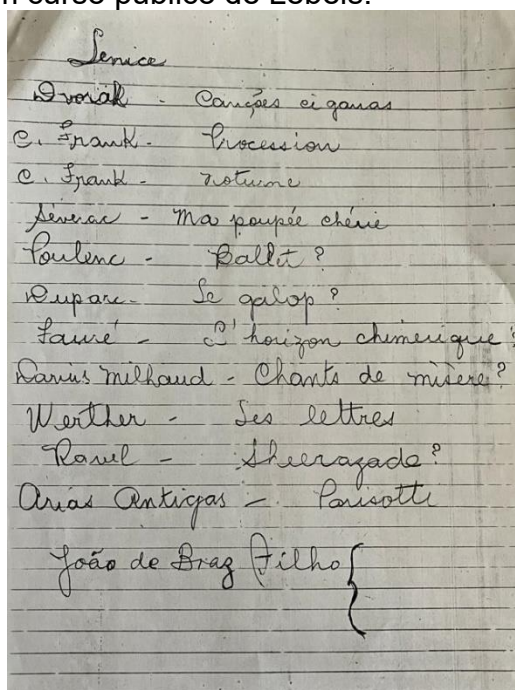 m curso público de Lebeis.
Lenice
Dvorák - Canções ciganas
C. Frank - Procession
C. Frank - Noturne
Séverac - Ma poupée chérie
Poulenc - Ballet?
Duparc - Le galop?
Fauré - L'horizon chimerique?
Darius Milhaud - Chants de misère?
Werther - Les lettres
Ravel - Sheerazade?
Arias Antigas - Parisotti
João de Braz Filho {